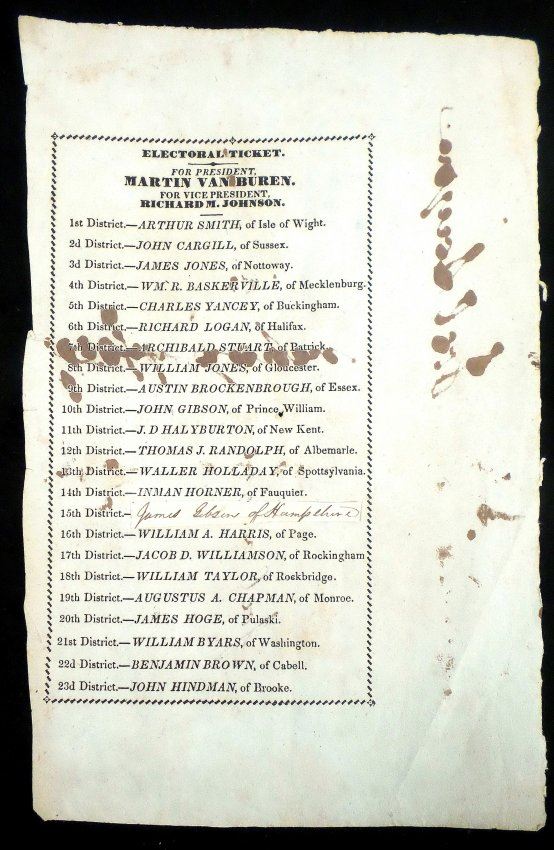 ELECTORAL TICKET.
FOR PRESIDENT,
MARTIN VAN BUREN.
FOR VICE PRESIDENT,
RICHARD M. JOHNSON.
1st District.—ARTHUR SMITH, of Isle of Wight.
2d District.—JOHN CARGILL, of Sussex.
3d District.—JAMES JONES, of Nottoway.
4th District.—WM. R. BASKERVILLE, of Mecklenburg.
5th District.—CHARLES YANCEY, of Buckingham.
6th District.—RICHARD LOGAN, of Halifax.
7th District.—ARCHIBALD STUART, of Patrick.
8th District.—WILLIAM JONES, of Gloucester.
9th District.—AUSTIN BROCKENBROUGH, of Essex.
10th District.—JOHN GIBSON, of Prince William.
11th District.—J. D HALYBURTON, of New Kent.
12th District.—THOMAS J. RANDOLPH, of Albemarle.
13th District.—WALLER HOLLADAY, of Spottsylvania.
14th District.—INMAN HORNER, of Fauquier.
15th District.—James of Hampshire
16th District.—WILLIAM A. HARRIS, of Page.
17th District.—JACOB D. WILLIAMSON, of Rockingham
18th District.—WILLIAM TAYLOR, of Rockbridge.
19th District.—AUGUSTUS A. CHAPMAN, of Monroe.
20th District.—JAMES HOGE, of Pulaski.
21st District.—WILLIAM BYARS, of Washington.
22d District.—BENJAMIN BROWN, of Cabell.
23d District.—JOHN HINDMAN, of Brooke.